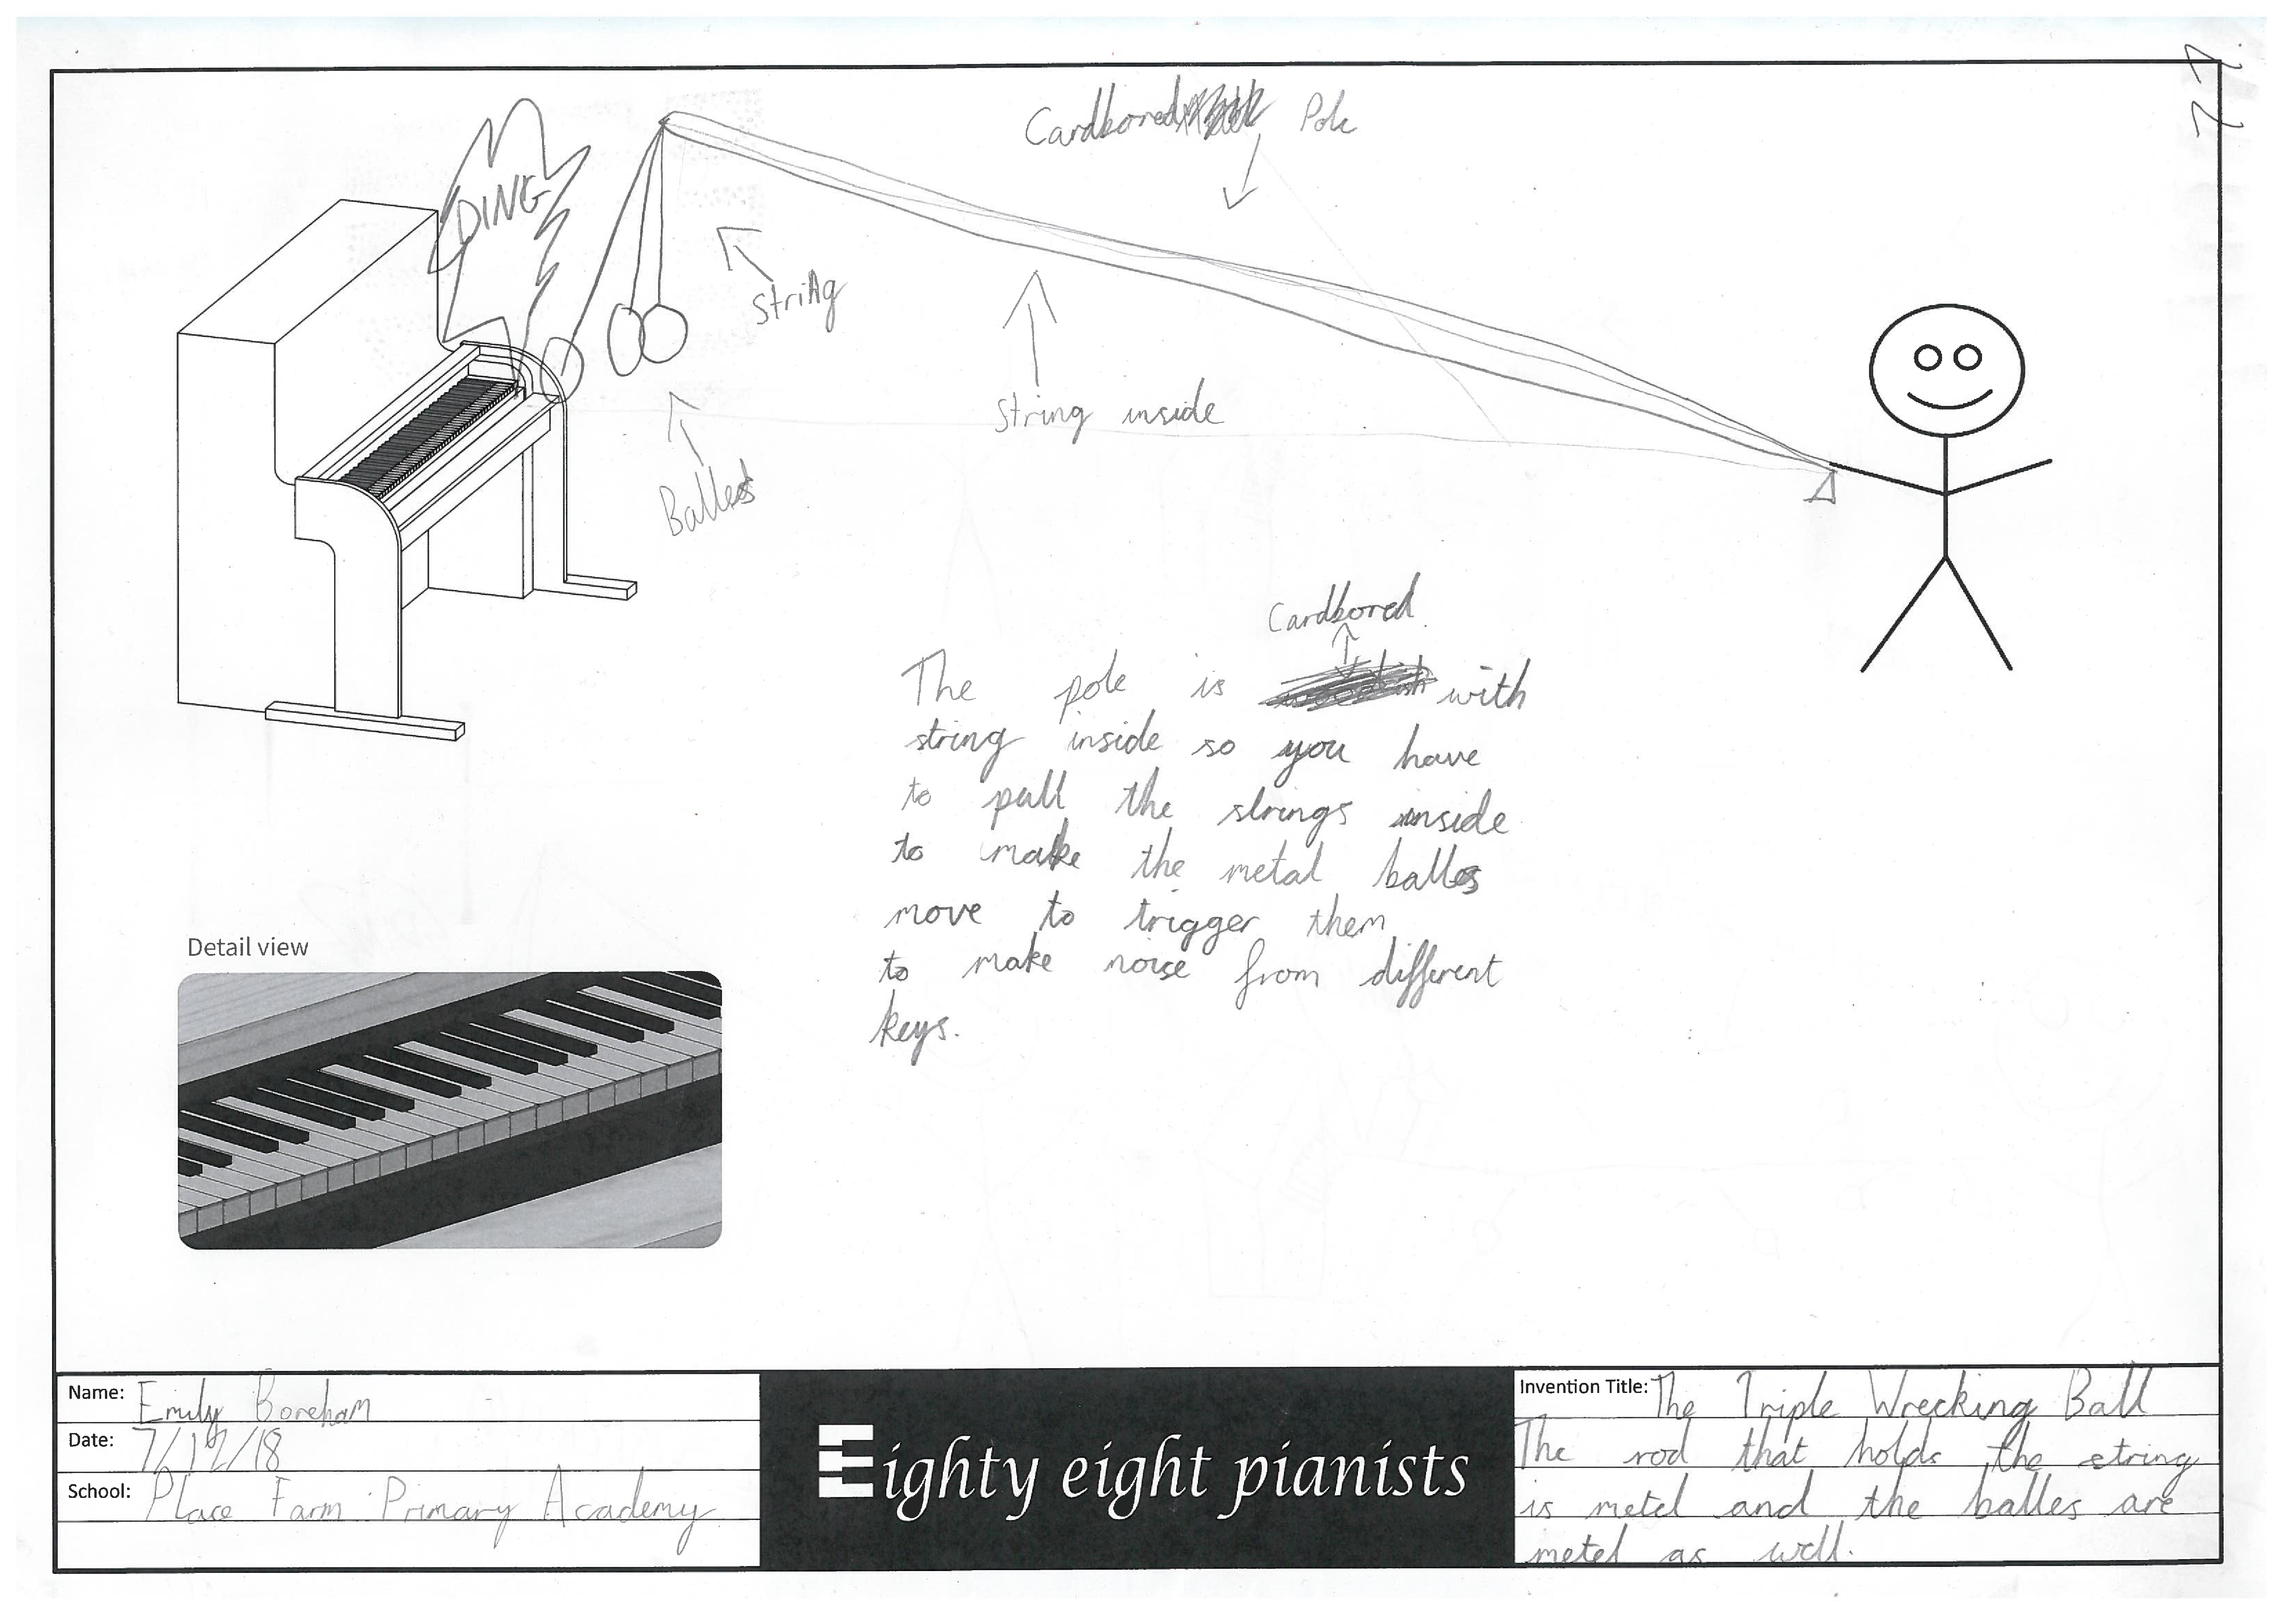 Cardbored Pole
DING
String
String inside
Balles
Cardbored
The pole is with
string inside so you have
to pull the strings inside
to make the metal balles
move to trigger them
to make noise from different
keys.
Detail view
Name: Emily Boreham
Date: 7/12/18
School: Place Farm Primary Academy
Eighty eight pianists
Invention Title: The Triple Wrecking Ball
The rod that holds the string
is metel and the balles are
metel as well.